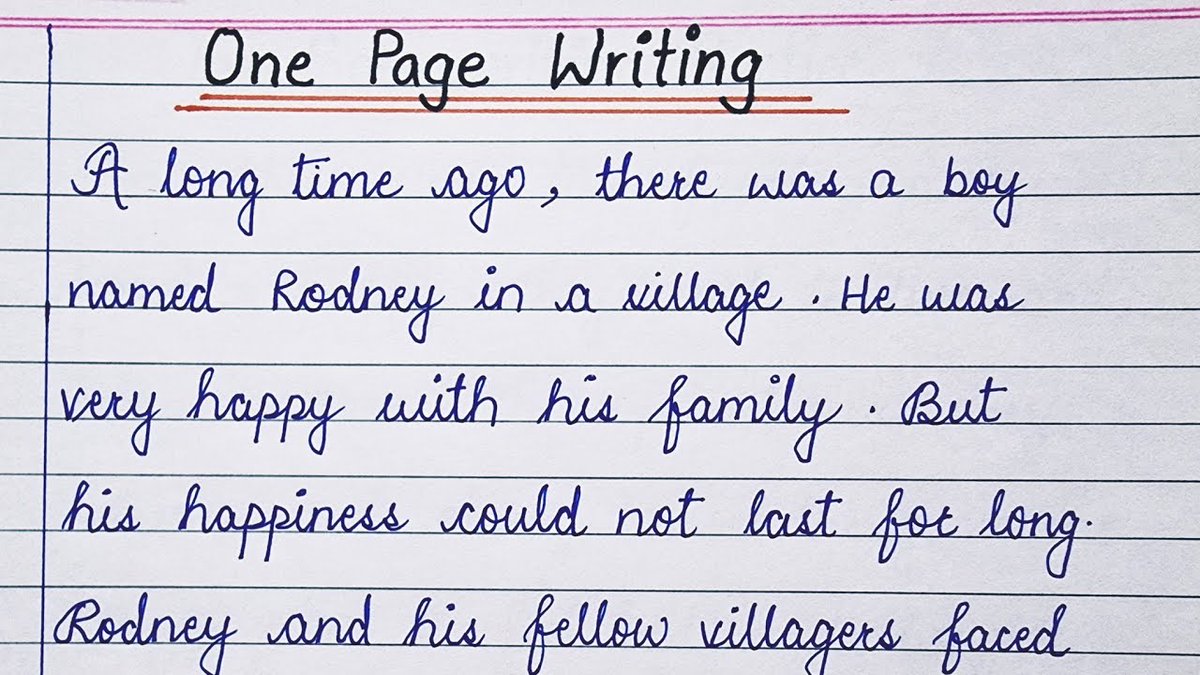 One Page Writing
A long time ago, there was a boy
named Rodney in a village. He was
very happy with his family. But
his happiness could not last for long.
Rodney and his fellow villagers faced